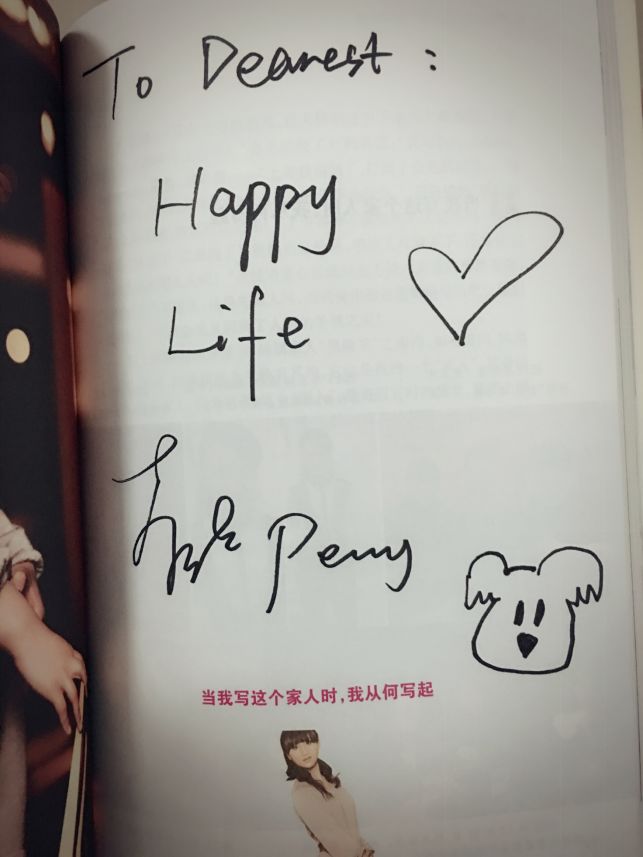 To Dearest :
Happy
Life
Peny
当我写这个家人时，我从何写起